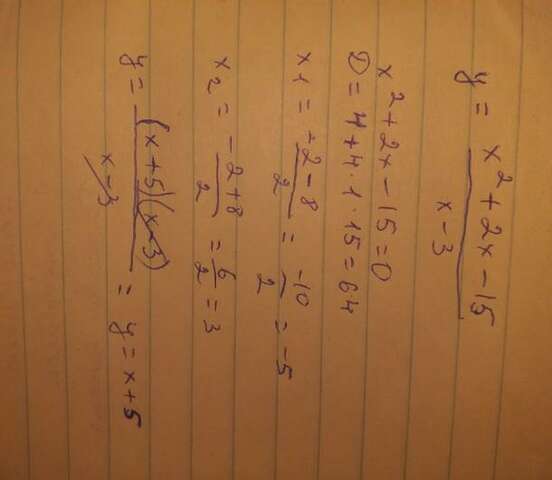 y = x² + 2x - 15 / x - 3
x² + 2x - 15 = 0
D = 4 + 4 · 1 · 15 = 64
x1 = -2 - 8 / 2 = -10 / 2 = -5
x2 = -2 + 8 / 2 = 6 / 2 = 3
y = (x + 5)(x - 3) / x - 3 = y = x + 5